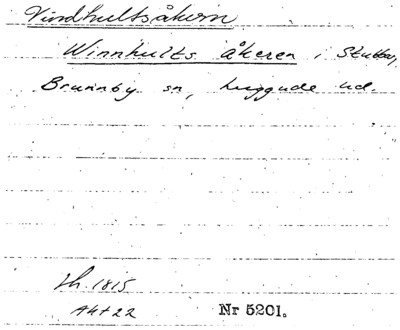 Vindhultsåkern
Winnhults åkeren i Stubbar,
Brunnby sn, Luggude hd.
Lh. 1815
Akt 22
Nr 5201.